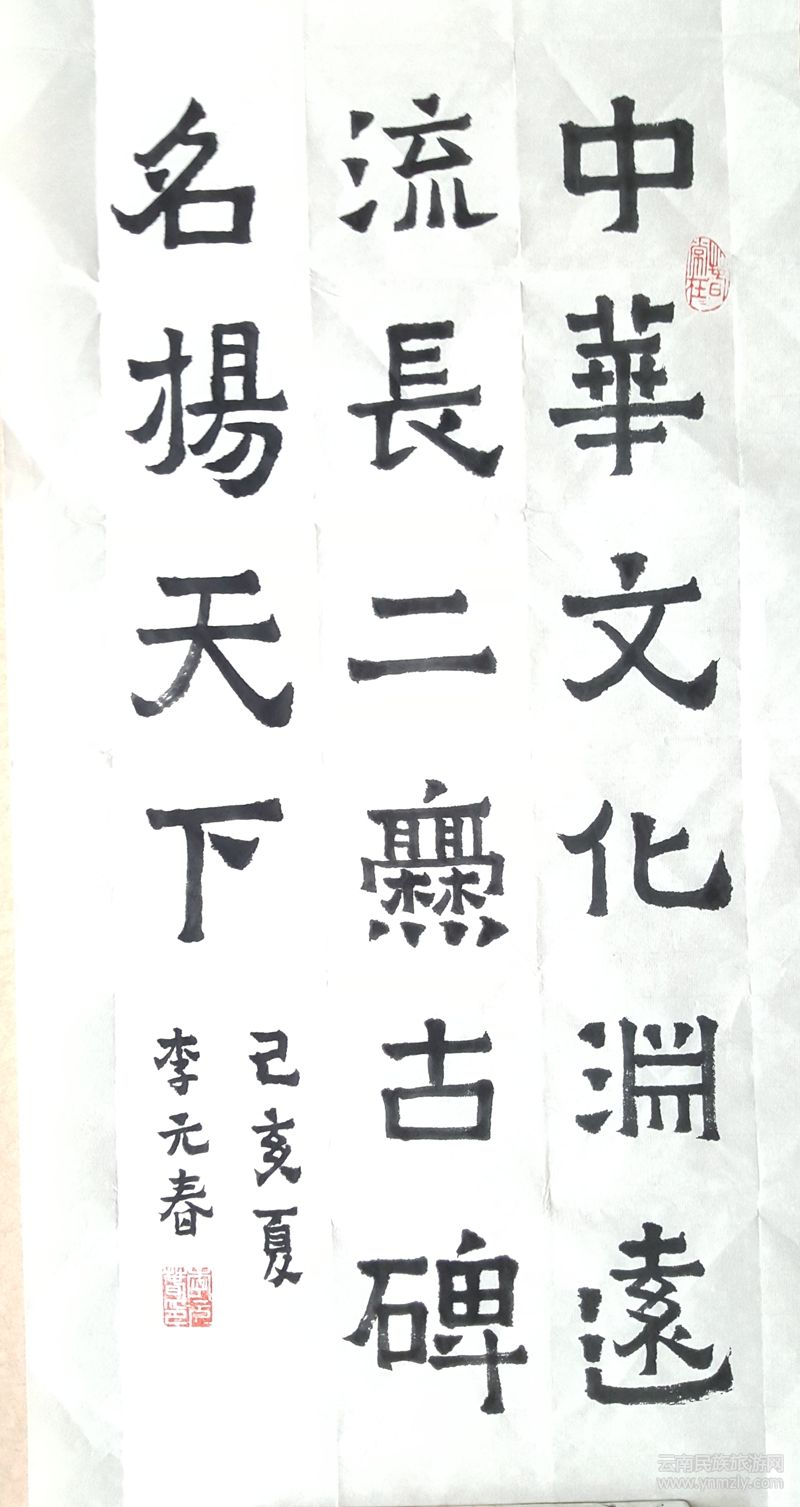 中華文化淵遠
流長二爨古碑
名揚天下
己亥夏
李元春
云南民族旅游网
www.ynmzly.com